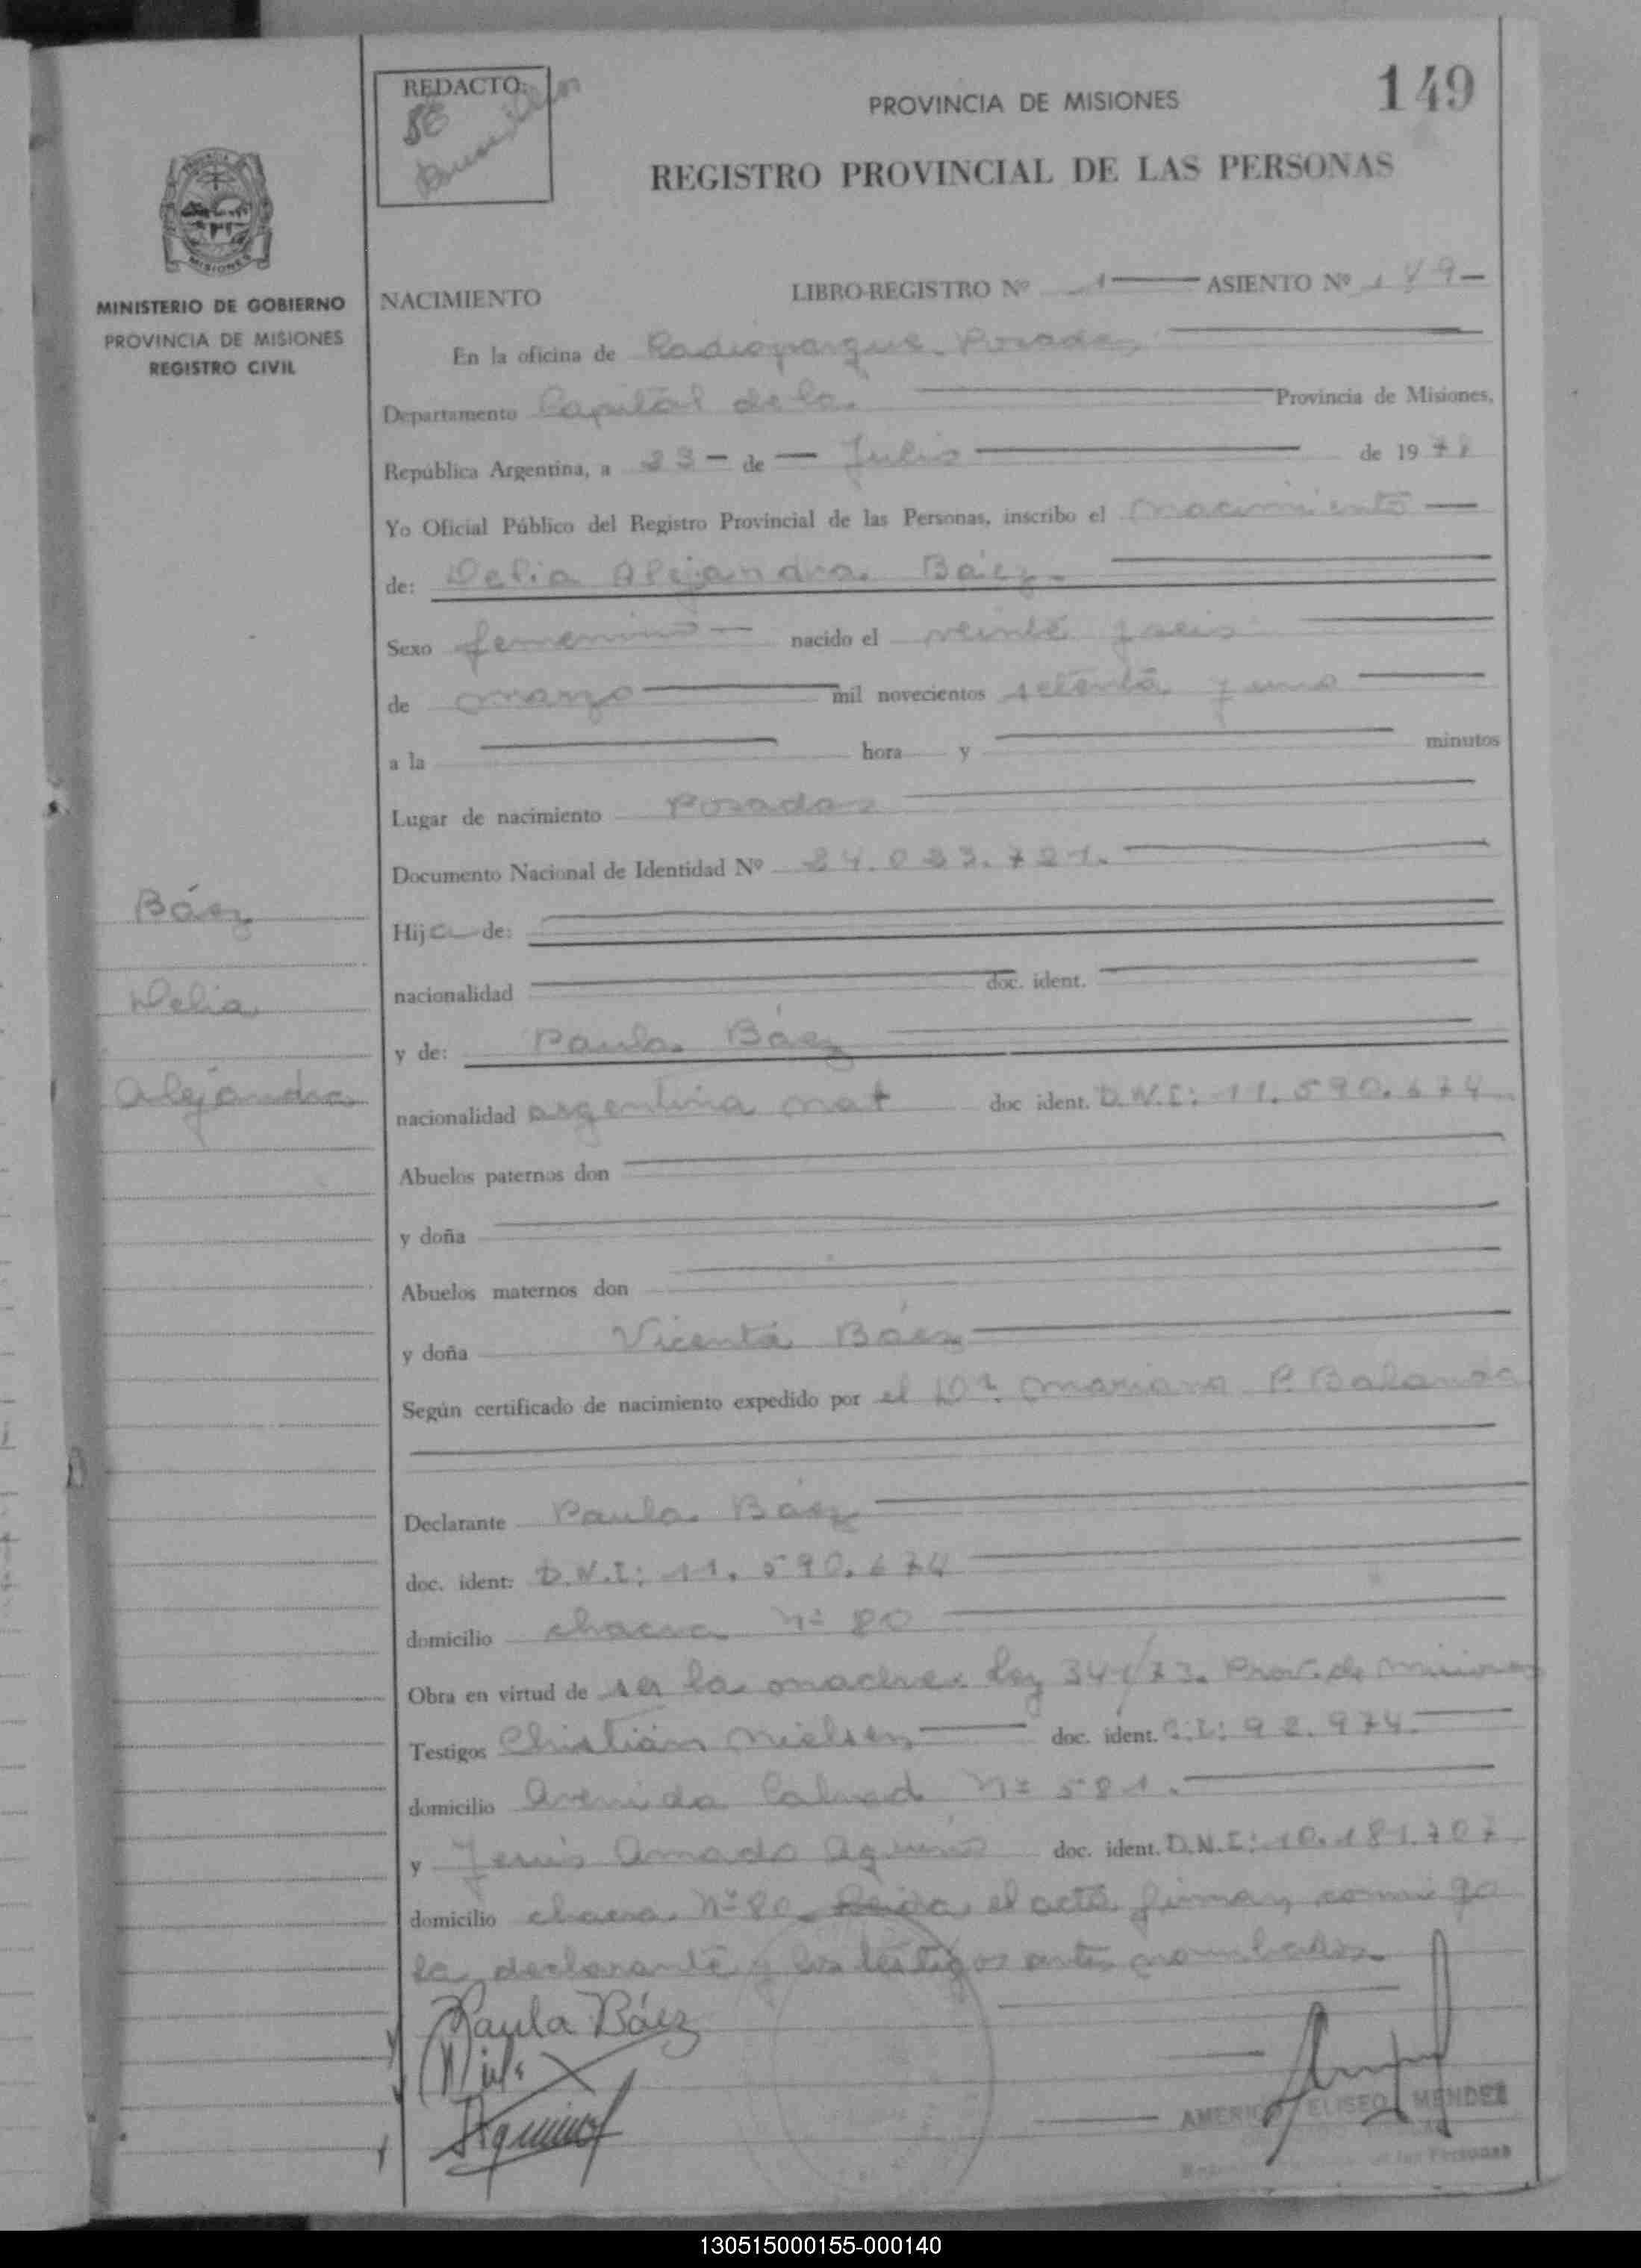 149
REDACTO:
PROVINCIA DE MISIONES
REGISTRO PROVINCIAL DE LAS PERSONAS
MISIONES
MINISTERIO DE GOBIERNO
PROVINCIA DE MISIONES
REGISTRO CIVIL
NACIMIENTO LIBRO-REGISTRO Nº 1 ASIENTO Nº 149
En la oficina de Radioparque Posadas
Departamento Capital de la Provincia de Misiones,
República Argentina, a 23 de Julio de 19
Yo Oficial Público del Registro Provincial de las Personas, inscribo el nacimiento
de: Delia Alejandra Báez
Sexo femenino nacido el veinte y seis
de marzo mil novecientos setenta y uno
a la hora y minutos
Lugar de nacimiento Posadas
Documento Nacional de Identidad Nº 24.033.721.
Hija de:
nacionalidad doc. ident.
y de: Paula Báez
nacionalidad argentina nat doc ident. D.N.I: 11.590.674
Abuelos paternos don
y doña
Abuelos maternos don
y doña Vicenta Báez
Según certificado de nacimiento expedido por el Dr. Mariano P. Balanza
Báez
Delia
Alejandra
Declarante Paula Báez
doc. ident: D.N.I: 11.590.674
domicilio chacra Nº 80
Obra en virtud de ser la madre. Ley 341/73. Prov. de Misiones
Testigos Christian Nielsen doc. ident. C.I: 92.974.
domicilio Avenida Nº 581.
y Jesús Amado Aquino doc. ident. D.N.I: 10.181.707
domicilio chacra Nº 80. Leida el acta firman conmigo
la declarante y los testigos antes nombrados.
Paula Báez
Niels
Aquino
AMERICO ELISEO MENDEZ
de las Personas
130515000155-000140